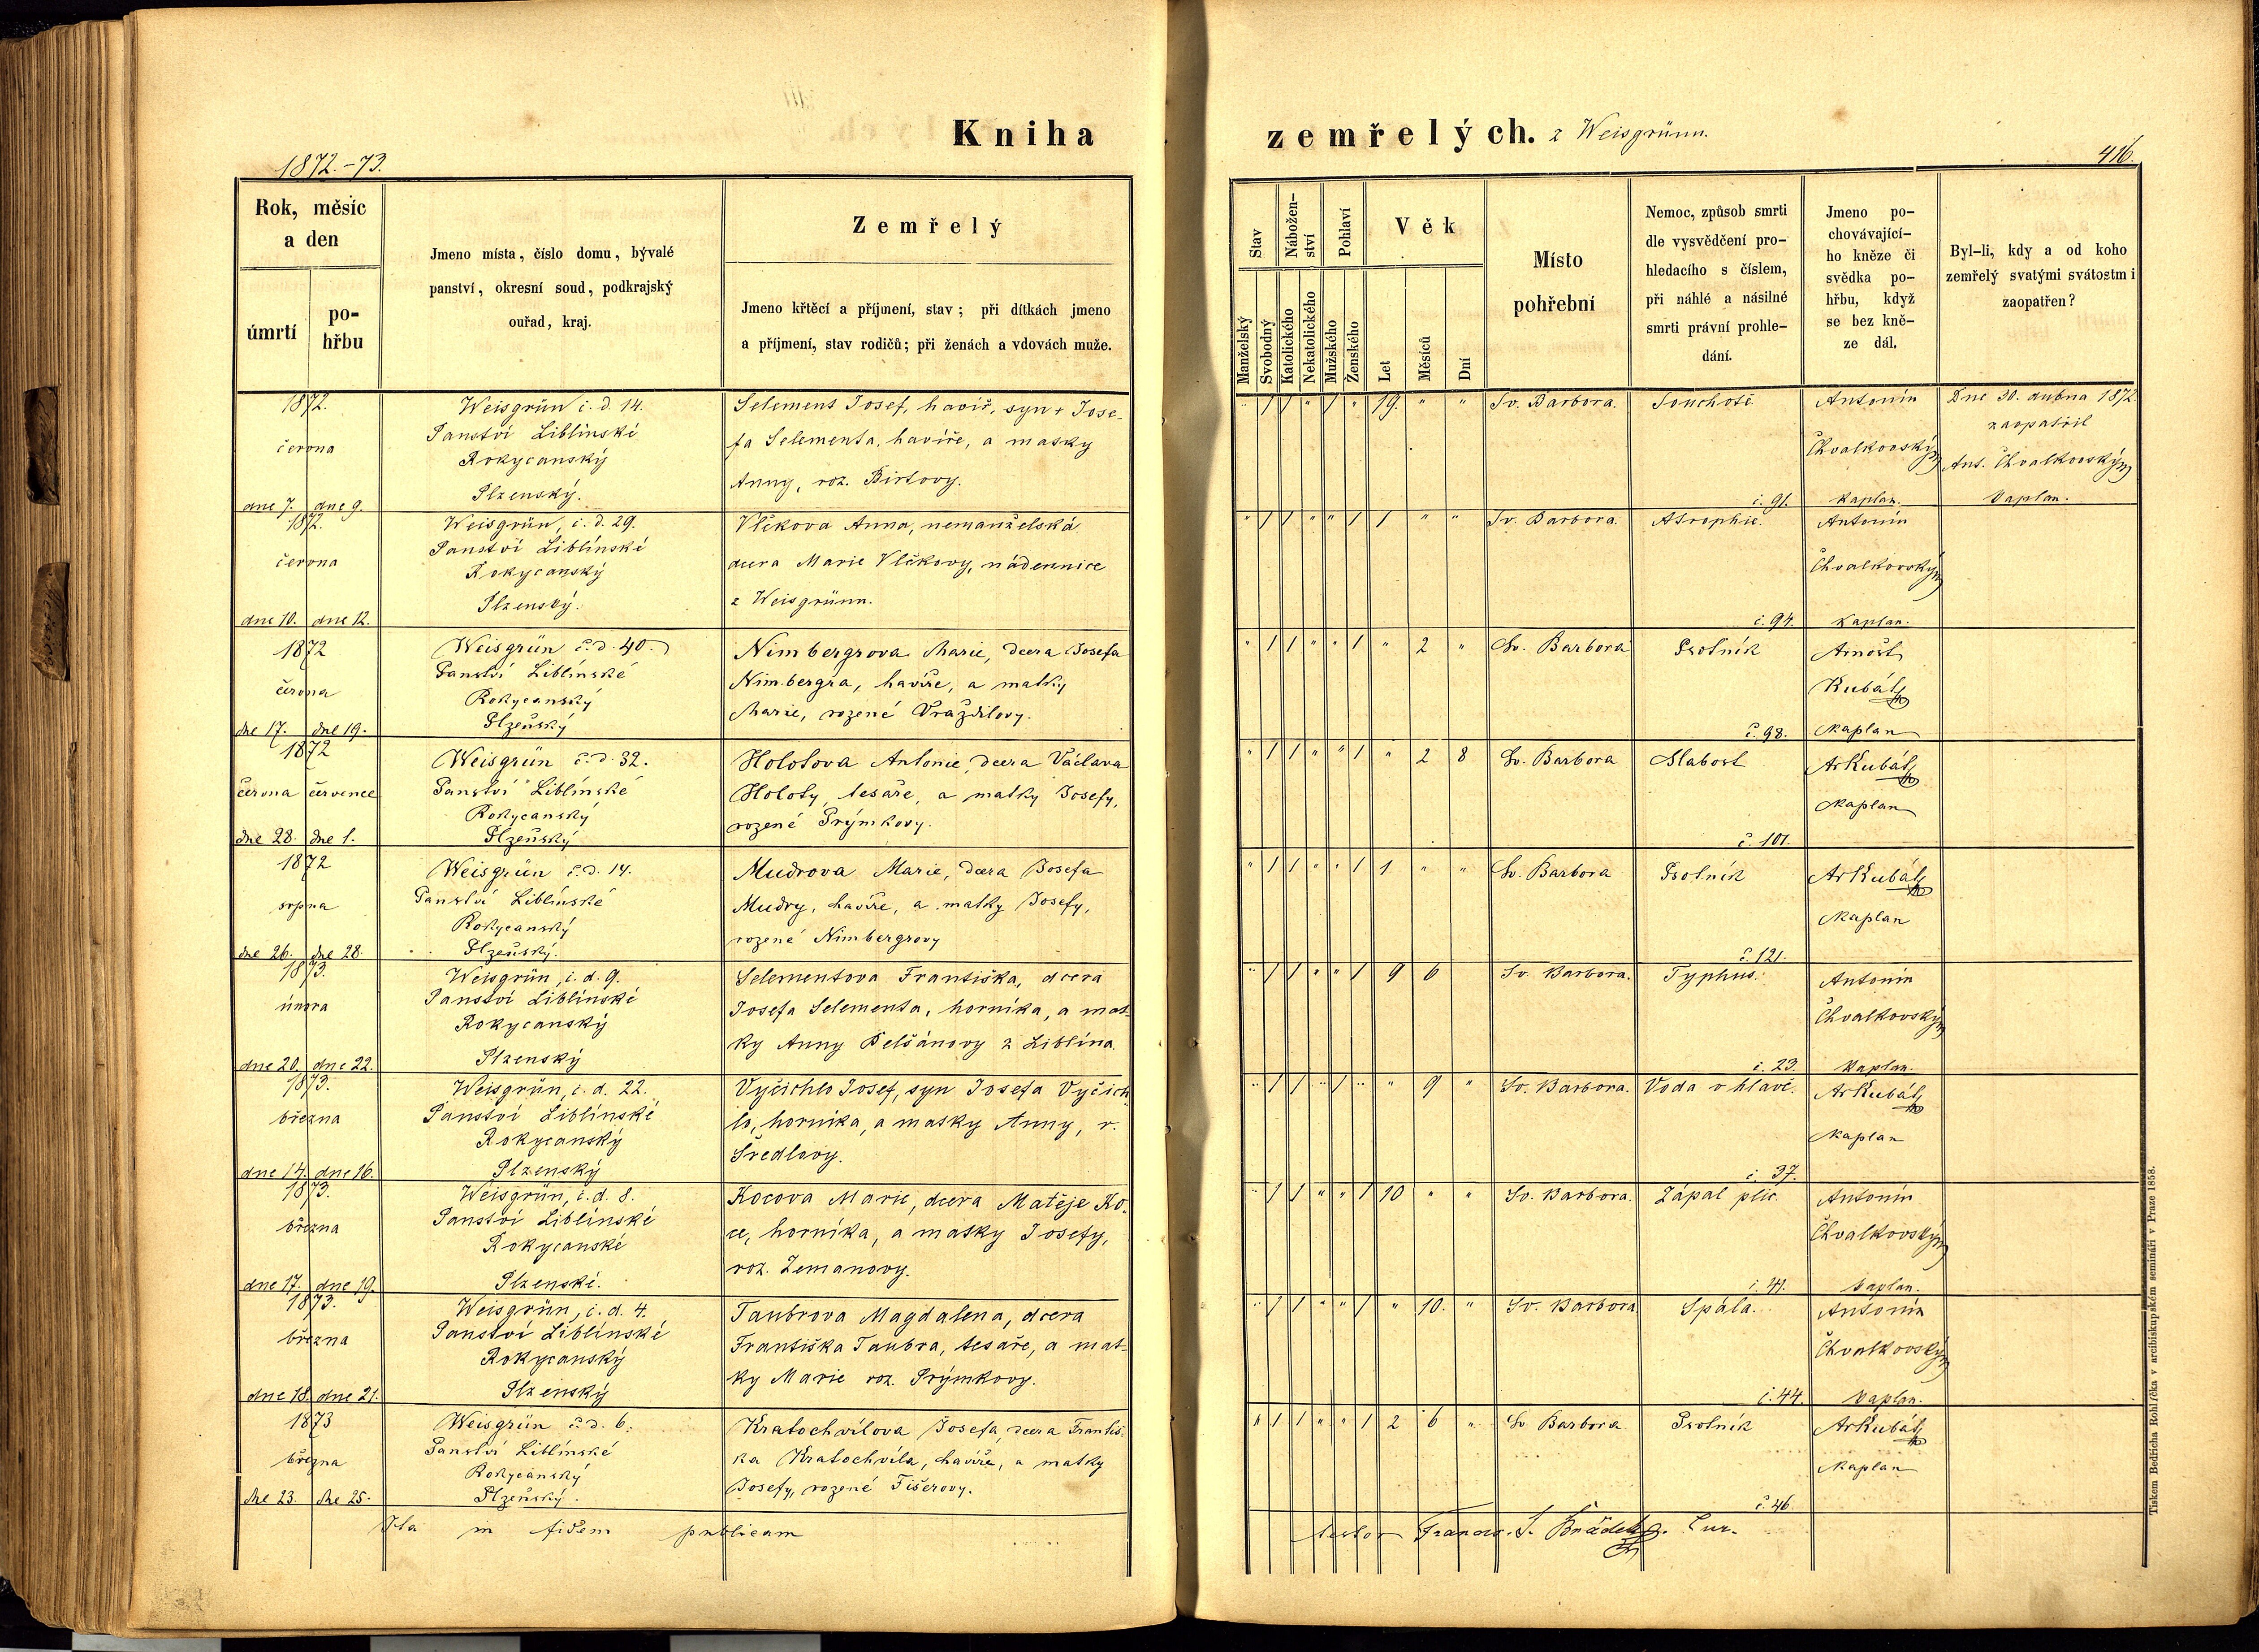 Kniha
zemřelých. z Weisgrünn.
1872.-73.
416.
Rok, měsíc
a den
úmrtí
po-
hřbu
Jmeno místa, číslo domu, bývalé
panství, okresní soud, podkrajský
ouřad, kraj.
Zemřelý
Jmeno křtěcí a příjmení, stav; při dítkách jmeno
a příjmení, stav rodičů; při ženách a vdovách muže.
Stav
Manželský
Svobodný
Nábožen-
ství
Katolického
Nekatolického
Pohlaví
Mužského
Ženského
Věk
Let
Měsíců
Dní
Místo
pohřební
Nemoc, způsob smrti
dle vysvědčení pro-
hledacího s číslem,
při náhlé a násilné
smrti právní prohle-
dání.
Jmeno po-
chovávající-
ho kněze či
svědka po-
hřbu, když
se bez kně-
ze dál.
Byl-li, kdy a od koho
zemřelý svatými svátostmi
zaopatřen?
1872.
června
dne 7. dne 9.
Weisgrün č. d. 14.
Panství Liblínské
Rokycanský
Plzenský.
Selement Josef, havíř, syn + Jose-
fa Selementa, havíře, a matky
Anny, roz. Birtovy.
" / / " / " 19. " "
Sv. Barbora.
Souchotě.
č. 91.
Antonín
Chvalkovský
Kaplan.
Dne 30. dubna 1872
zaopatřil
Ant. Chvalkovský
Kaplan.
1872.
června
dne 10. dne 12.
Weisgrün, č. d. 29.
Panství Liblínské
Rokycanský
Plzenský.
Vlčkova Anna, nemanželská
dcera Marie Vlčkovy, nádennice
z Weisgrünn.
" / / " " / 1 " "
Sv. Barbora.
Atrophie.
č. 94.
Antonín
Chvalkovský
Kaplan.
1872
června
dne 17. dne 19.
Weisgrün č. d. 40.
Panství Liblínské
Rokycanský
Plzeňský
Nimbergrova Marie, dcera Josefa
Nimbergra, havíře, a matky
Marie, rozené Vraždilovy.
" / / " " / " 2 "
Sv. Barbora
Psotník
č. 98.
Arnošt
Kubát
Kaplan
1872
června července
dne 28. dne 1.
Weisgrün č. d. 32.
Panství Liblínské
Rokycanský
Plzeňský
Holotova Antonie, dcera Václava
Holoty, tesaře, a matky Josefy,
rozené Prýmkovy.
" / / " " / " 2 8
Sv. Barbora
Slabost
č. 101.
ArKubát
Kaplan
1872
srpna
dne 26. dne 28.
Weisgrün č. d. 14.
Panství Liblínské
Rokycanský
Plzeňský.
Mudrova Marie, dcera Josefa
Mudry, havíře, a matky Josefy,
rozené Nimbergrovy
" / / " " / 1 " "
Sv. Barbora
Psotník
č. 121.
ArKubát
Kaplan
1873.
února
dne 20. dne 22.
Weisgrün, č. d. 9.
Panství Liblínské
Rokycanský
Plzenský
Selementova Františka, dcera
Josefa Selementa, horníka, a mat-
ky Anny Pelšánovy z Liblína.
" / / " " / 9 6
Sv. Barbora.
Typhus.
č. 23.
Antonín
Chvalkovský
Kaplan.
1873.
března
dne 14. dne 16.
Weisgrün, č. d. 22.
Panství Liblínské
Rokycanský
Plzenský
Vyčichlo Josef, syn Josefa Vyčich
lo, horníka, a matky Anny, r.
Švedlovy.
" / / " / " " 9 "
Sv. Barbora.
Voda v hlavě.
č. 37.
ArKubát
Kaplan
1873.
března
dne 17. dne 19.
Weisgrün, č. d. 8.
Panství Liblínské
Rokycanské
Plzenské.
Kocova Marie, dcera Matěje Ko-
ce, horníka, a matky Josefy,
roz. Zemanovy.
" / / " " / 10 " "
Sv. Barbora.
Zápal plic.
č. 41.
Antonín
Chvalkovský
Kaplan.
1873.
března
dne 18. dne 21.
Weisgrün, č. d. 4.
Panství Liblínské
Rokycanský
Plzenský
Taubrova Magdalena, dcera
Františka Taubra, tesaře, a mat-
ky Marie roz. Prýmkovy.
" / / " " / " 10. "
Sv. Barbora
Spála.
č. 44.
Antonín
Chvalkovský
Kaplan.
1873
března
dne 23. dne 25.
Weisgrün č. d. 6.
Panství Liblínské
Rokycanský
Plzeňský.
Kratochvílova Josefa, dcera Františ-
ka Kratochvíla, havíře, a matky
Josefy, rozené Fišerovy.
" / / " " / 2 6 "
Sv. Barbora
Psotník
č. 46.
ArKubát
Kaplan
Ita in fidem publicam
testor Francis. S. Cur.
Tiskem Bedřicha Rohlíčka v arcibiskupském semináři v Praze 1858.